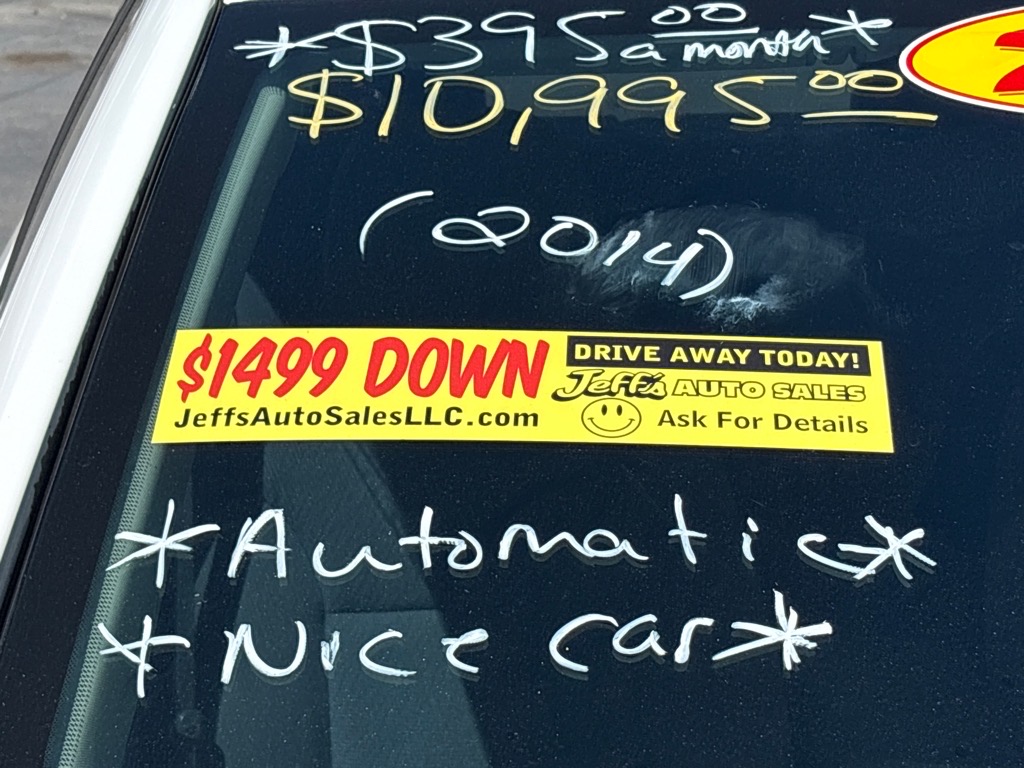 *$395.00 a month*
$10,995.00
(2014)
$1499 DOWN
JeffsAutoSalesLLC.com
DRIVE AWAY TODAY!
Jeff's AUTO SALES
Ask For Details
*Automatic*
*Nice car*